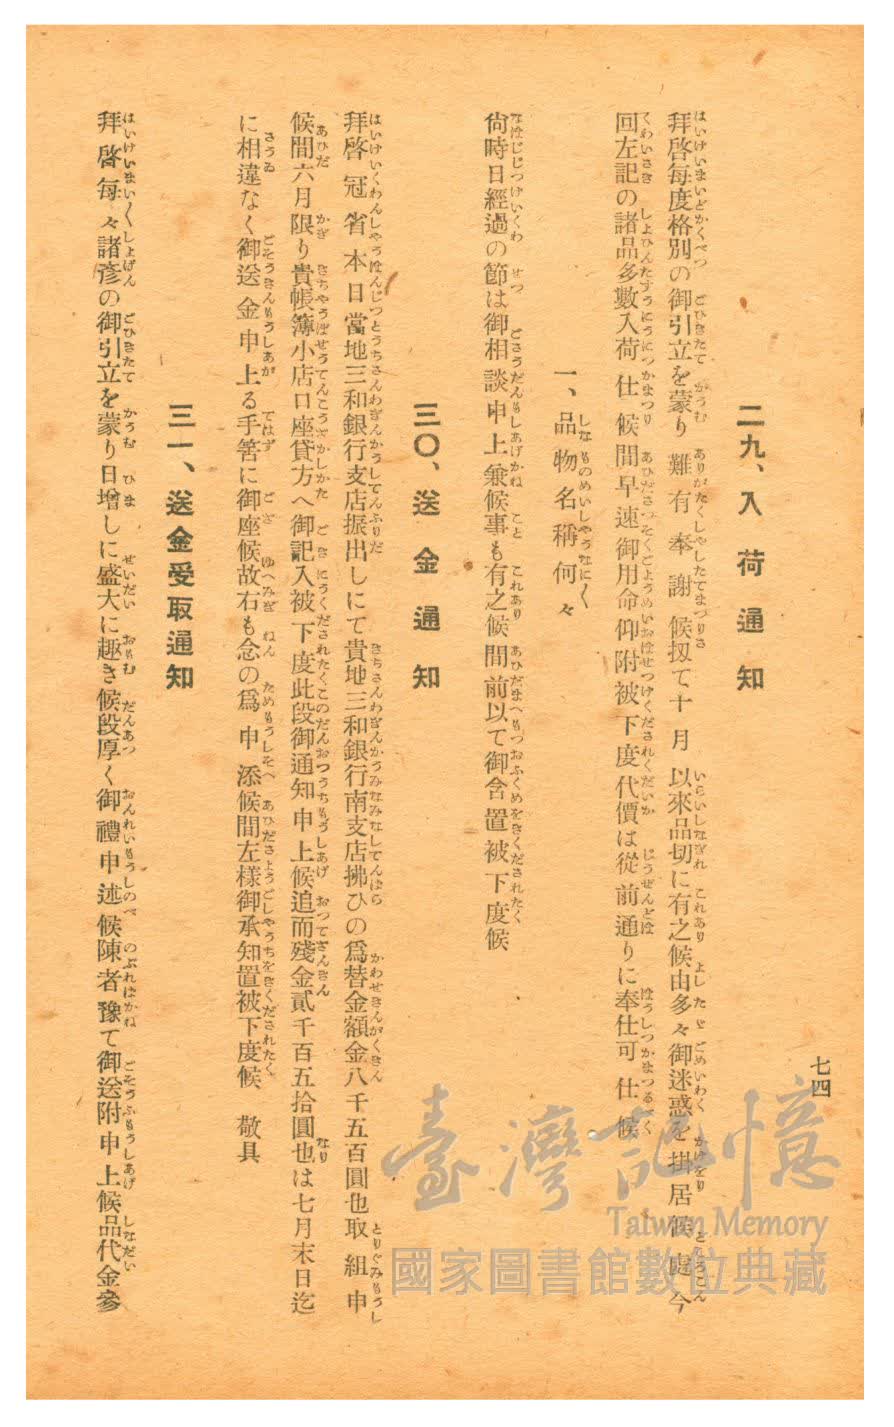 七四
二九、入荷通知
拜啓每度格別の御引立を蒙り難有奉謝候扨て十月以來品切に有之候由多々御迷惑を掛居候處今
回左記の諸品多數入荷仕候間早速御用命仰附被下度代價は從前通りに奉仕可仕候
一、品物名稱何々
尙時日經過の節は御相談申上兼候事も有之候間前以て御含置被下度候
三〇、送金通知
拜啓冠省本日當地三和銀行支店振出しにて貴地三和銀行南支店拂ひの爲替金額金八千五百圓也取組申
候間六月限り貴帳簿小店口座貸方へ御記入被下度此段御通知申上候追而殘金貳千百五拾圓也は七月末日迄
に相違なく御送金申上る手筈に御座候故右も念の爲申添候間左樣御承知置被下度候　敬具
三一、送金受取通知
拜啓每々諸彥の御引立を蒙り日增しに盛大に趣き候段厚く御禮申述候陳者豫て御送附申上候品代金參
臺灣記憶
Taiwan Memory
國家圖書館數位典藏